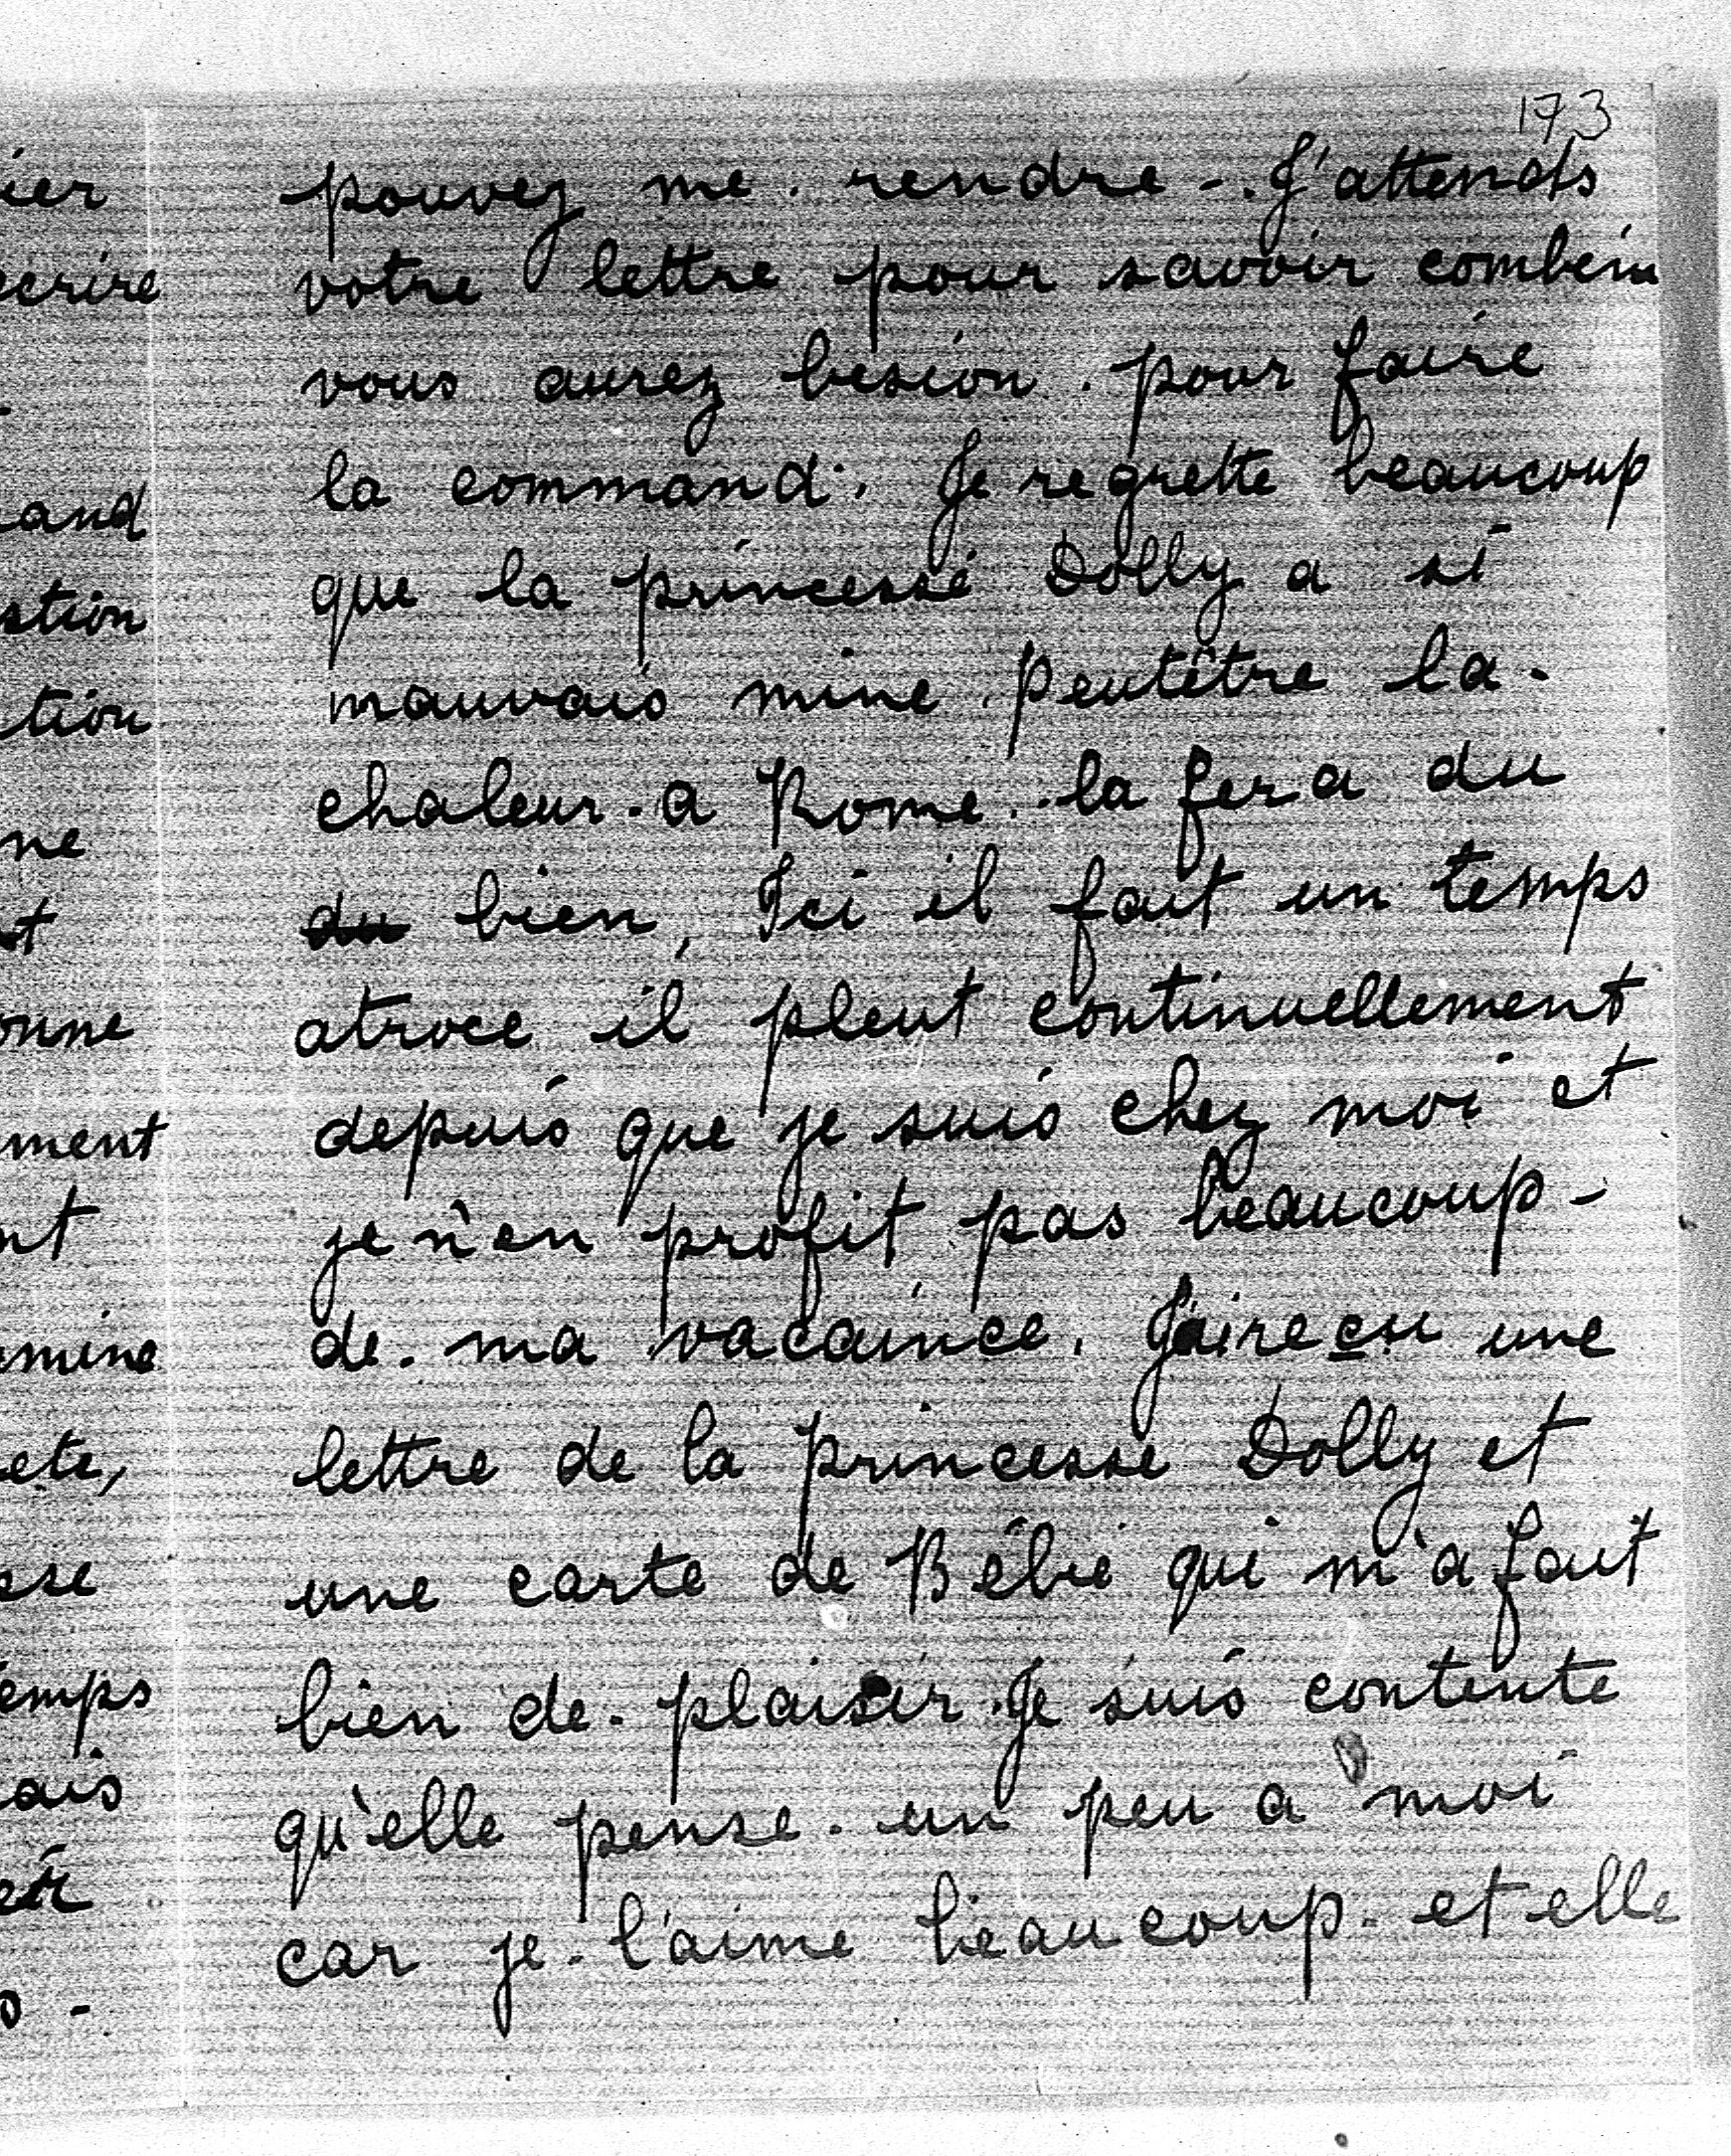 173
pouvez me. rendre -. J'attends
votre lettre pour savoir combein
vous aurez besion. pour faire
la command. Je regrette beaucoup
que la princesse Dolly a si
mauvais mine. Peutêtre la.
chaleur. a Rome. la fera du
du bien, Ici il fait un temps
atroce il pleut continuellement
depuis que je suis chez moi et
je n'en profit pas beaucoup -
de. ma vacaince. J'ai reçu une
lettre de la princesse Dolly et
une carte de Bébé qui m'a fait
bien de. plaisir. Je suis contente
qu'elle pense. un peu a moi
car je. l'aime beaucoup. et elle
ier
ecrire
and
stion
tion
ne
t
onne
ment
nt
mine
ete,
sse
emps
ais